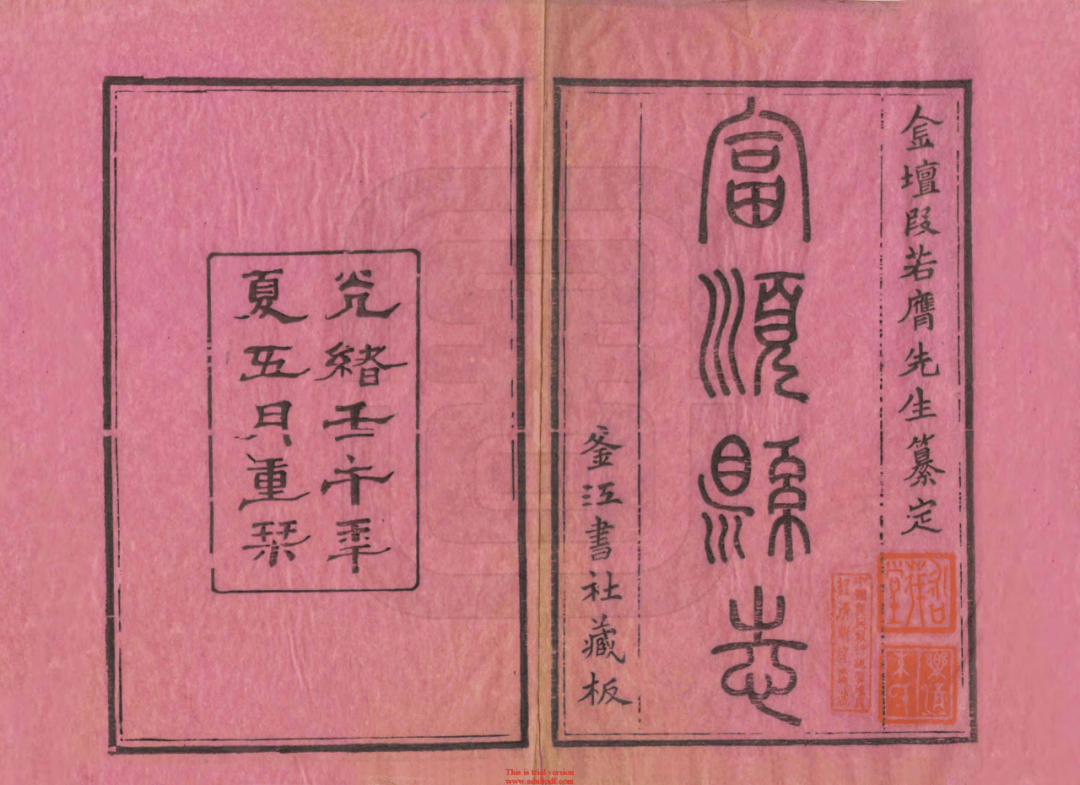 金壇段若膺先生纂定
富順縣志
釜江書社藏板
光緒壬午年
夏五月重栞
This is trial version
www.adultpdf.com